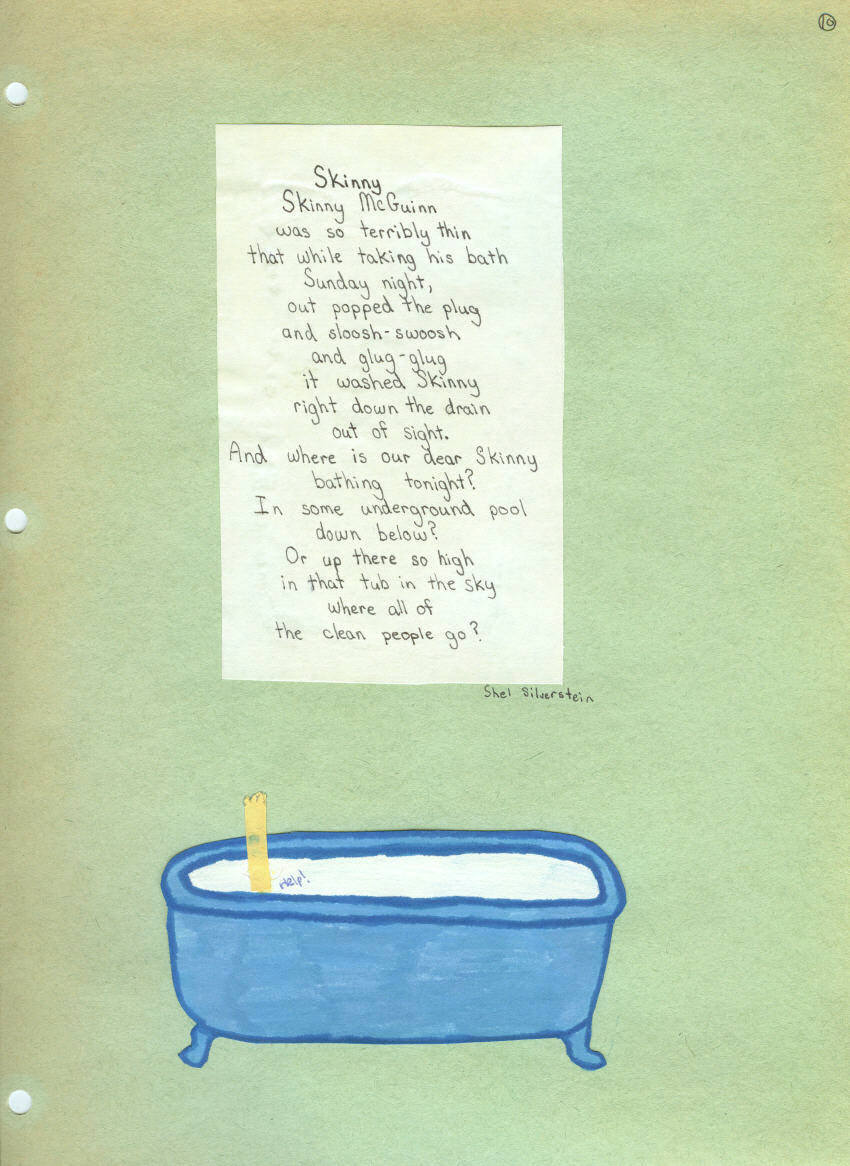 10
Skinny
Skinny McGuinn
was so terribly thin
that while taking his bath
Sunday night,
out popped the plug
and sloosh-swoosh
and glug-glug
it washed Skinny
right down the drain
out of sight.
And where is our dear Skinny
bathing tonight?
In some underground pool
down below?
Or up there so high
in that tub in the sky
where all of
the clean people go?
Shel Silverstein
Help!